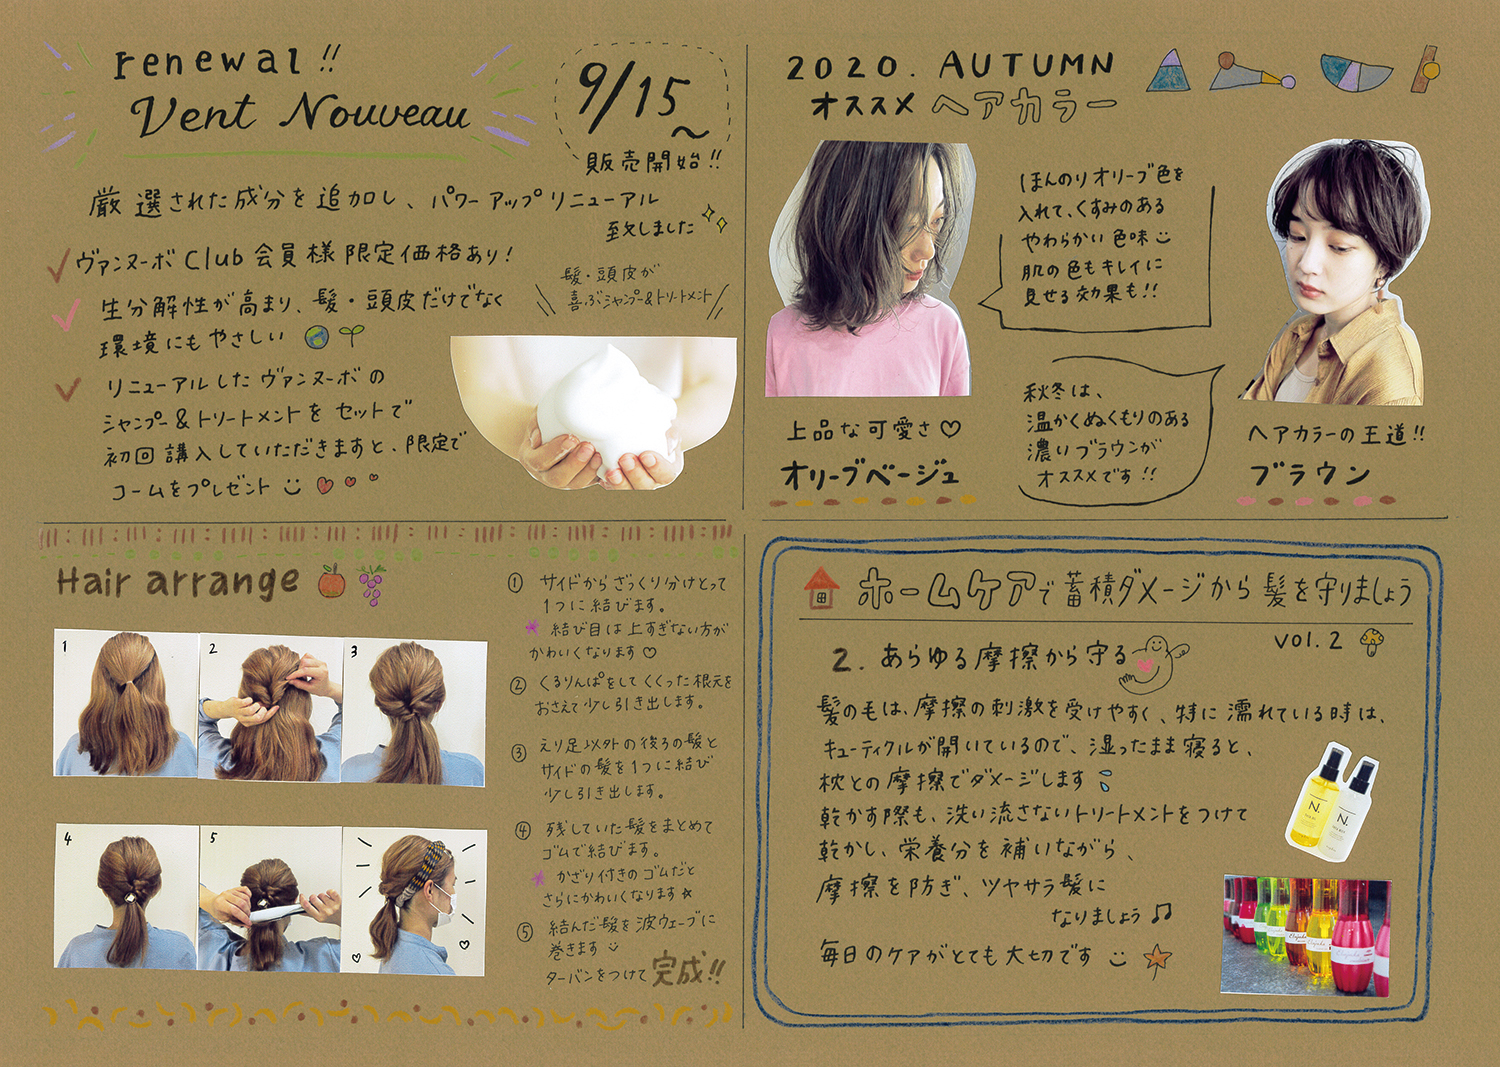 renewal!!
Vent Nouveau
9/15～
販売開始!!
厳選された成分を追加し、パワーアップリニューアル
致しました
ヴァンヌーボClub会員様限定価格あり!
生分解性が高まり、髪・頭皮だけでなく
環境にもやさしい
リニューアルしたヴァンヌーボの
シャンプー&トリートメントをセットで
初回購入していただきますと、限定で
コームをプレゼント
髪・頭皮が
喜ぶシャンプー&トリートメント
2020. AUTUMN
オススメ ヘアカラー
ほんのりオリーブ色を
入れて、くすみのある
やわらかい色味
肌の色もキレイに
見せる効果も!!
上品な可愛さ♡
オリーブベージュ
秋冬は、
温かくぬくもりのある
濃いブラウンが
オススメです!!
ヘアカラーの王道!!
ブラウン
Hair arrange
1
2
3
4
5
① サイドからざっくり分けとって
1つに結びます。
結び目は上すぎない方が
かわいくなります♡
② くるりんぱをしてくくった根元を
おさえて少し引き出します。
③ えり足以外の後ろの髪と
サイドの髪を1つに結び
少し引き出します。
④ 残していた髪をまとめて
ゴムで結びます。
かざり付きのゴムだと
さらにかわいくなります☆
⑤ 結んだ髪を波ウェーブに
巻きます
ターバンをつけて完成!!
ホームケアで蓄積ダメージから髪を守りましょう
vol.2
2. あらゆる摩擦から守る
髪の毛は、摩擦の刺激を受けやすく、特に濡れている時は、
キューティクルが開いているので、湿ったまま寝ると、
枕との摩擦でダメージします
乾かす際も、洗い流さないトリートメントをつけて
乾かし、栄養分を補いながら、
摩擦を防ぎ、ツヤサラ髪に
なりましょう♫
毎日のケアがとても大切です
N.
N.